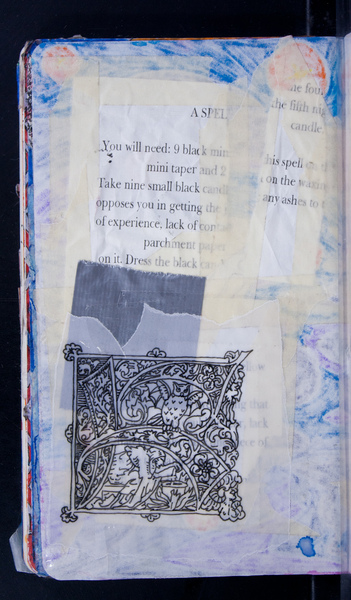 A SPEL
You will need: 9 black min
mini taper and 2
Take nine small black candl
opposes you in getting the
of experience, lack of con
parchment paper
on it. Dress the black can
the four
the fifth nig
candle
his spell on
on the waxin
any ashes to
ng that
lack